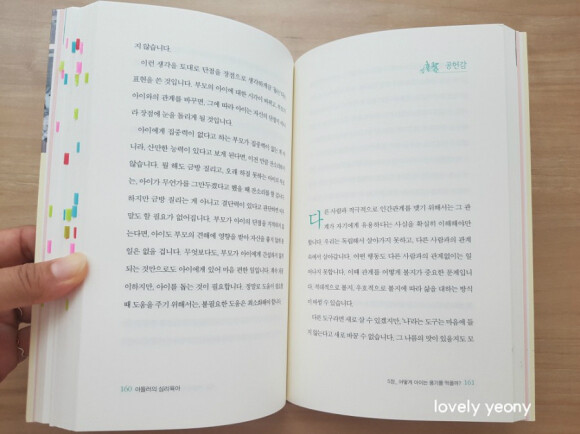 지 않습니다.
이런 생각을 토대로 단점을 장점으로 생각하게끔
표현을 쓴 것입니다. 부모의 아이에 대한 시각이 바뀌고, 부모가
아이와의 관계를 바꾸면, 그에 따라 아이는 자신의 단점이 아니
라 장점에 눈을 돌리게 될 것입니다.
아이에게 집중력이 없다고 하는 부모가 집중력이 없는 게 아
니라, 산만한 능력이 있다고 보게 된다면, 이전 만큼 잔소리
않습니다. 뭘 해도 금방 질리고, 오래 하질 못하는 아이의
는, 아이가 무언가를 그만두겠다고 했을 때 잔소리를
하지만 금방 질리는 게 아니고 결단력이 있다고 판단하면 아무
말도 할 필요가 없어집니다. 부모가 아이의 단점을 지적하려
는다면, 아이도 부모의 견해에 영향을 받아 자신을 싫어
일은 없을 겁니다. 무엇보다도, 부모가 아이에게 간섭하지 않게
되는 것만으로도 아이에게 있어 마음 편한 일입니다. 게으
이하지만, 아이를 돕는 것이 필요합니다. 정말로 도움이 필요할
때 도움을 주기 위해서는, 불필요한 도움은 최소화해야 합니다.
160 아들러의 심리육아
공헌감
다른 사람과 적극적으로 인간관계를 맺기 위해서는 그 관
계가 자기에게 유용하다는 사실을 확실히 이해해야만
합니다. 우리는 독립해서 살아가지 못하고, 다른 사람과의 관계
속에서 살아갑니다. 어떤 행동도 다른 사람과의 관계없이는 일
어나지 못합니다. 이때 관계를 어떻게 볼지가 중요한 문제입니
다. 적대적으로 볼지, 우호적으로 볼지에 따라 삶을 대하는 방식
이 바뀔 수 있습니다.
다른 도구라면 새로 살 수 있겠지만, '나'라는 도구는 마음에 들
지 않는다고 새로 바꿀 수 없습니다. 그 나름의 맛이 있을지도 모
지금, 어떻게 아이는 용기를 먹을까? 161
lovely yeony